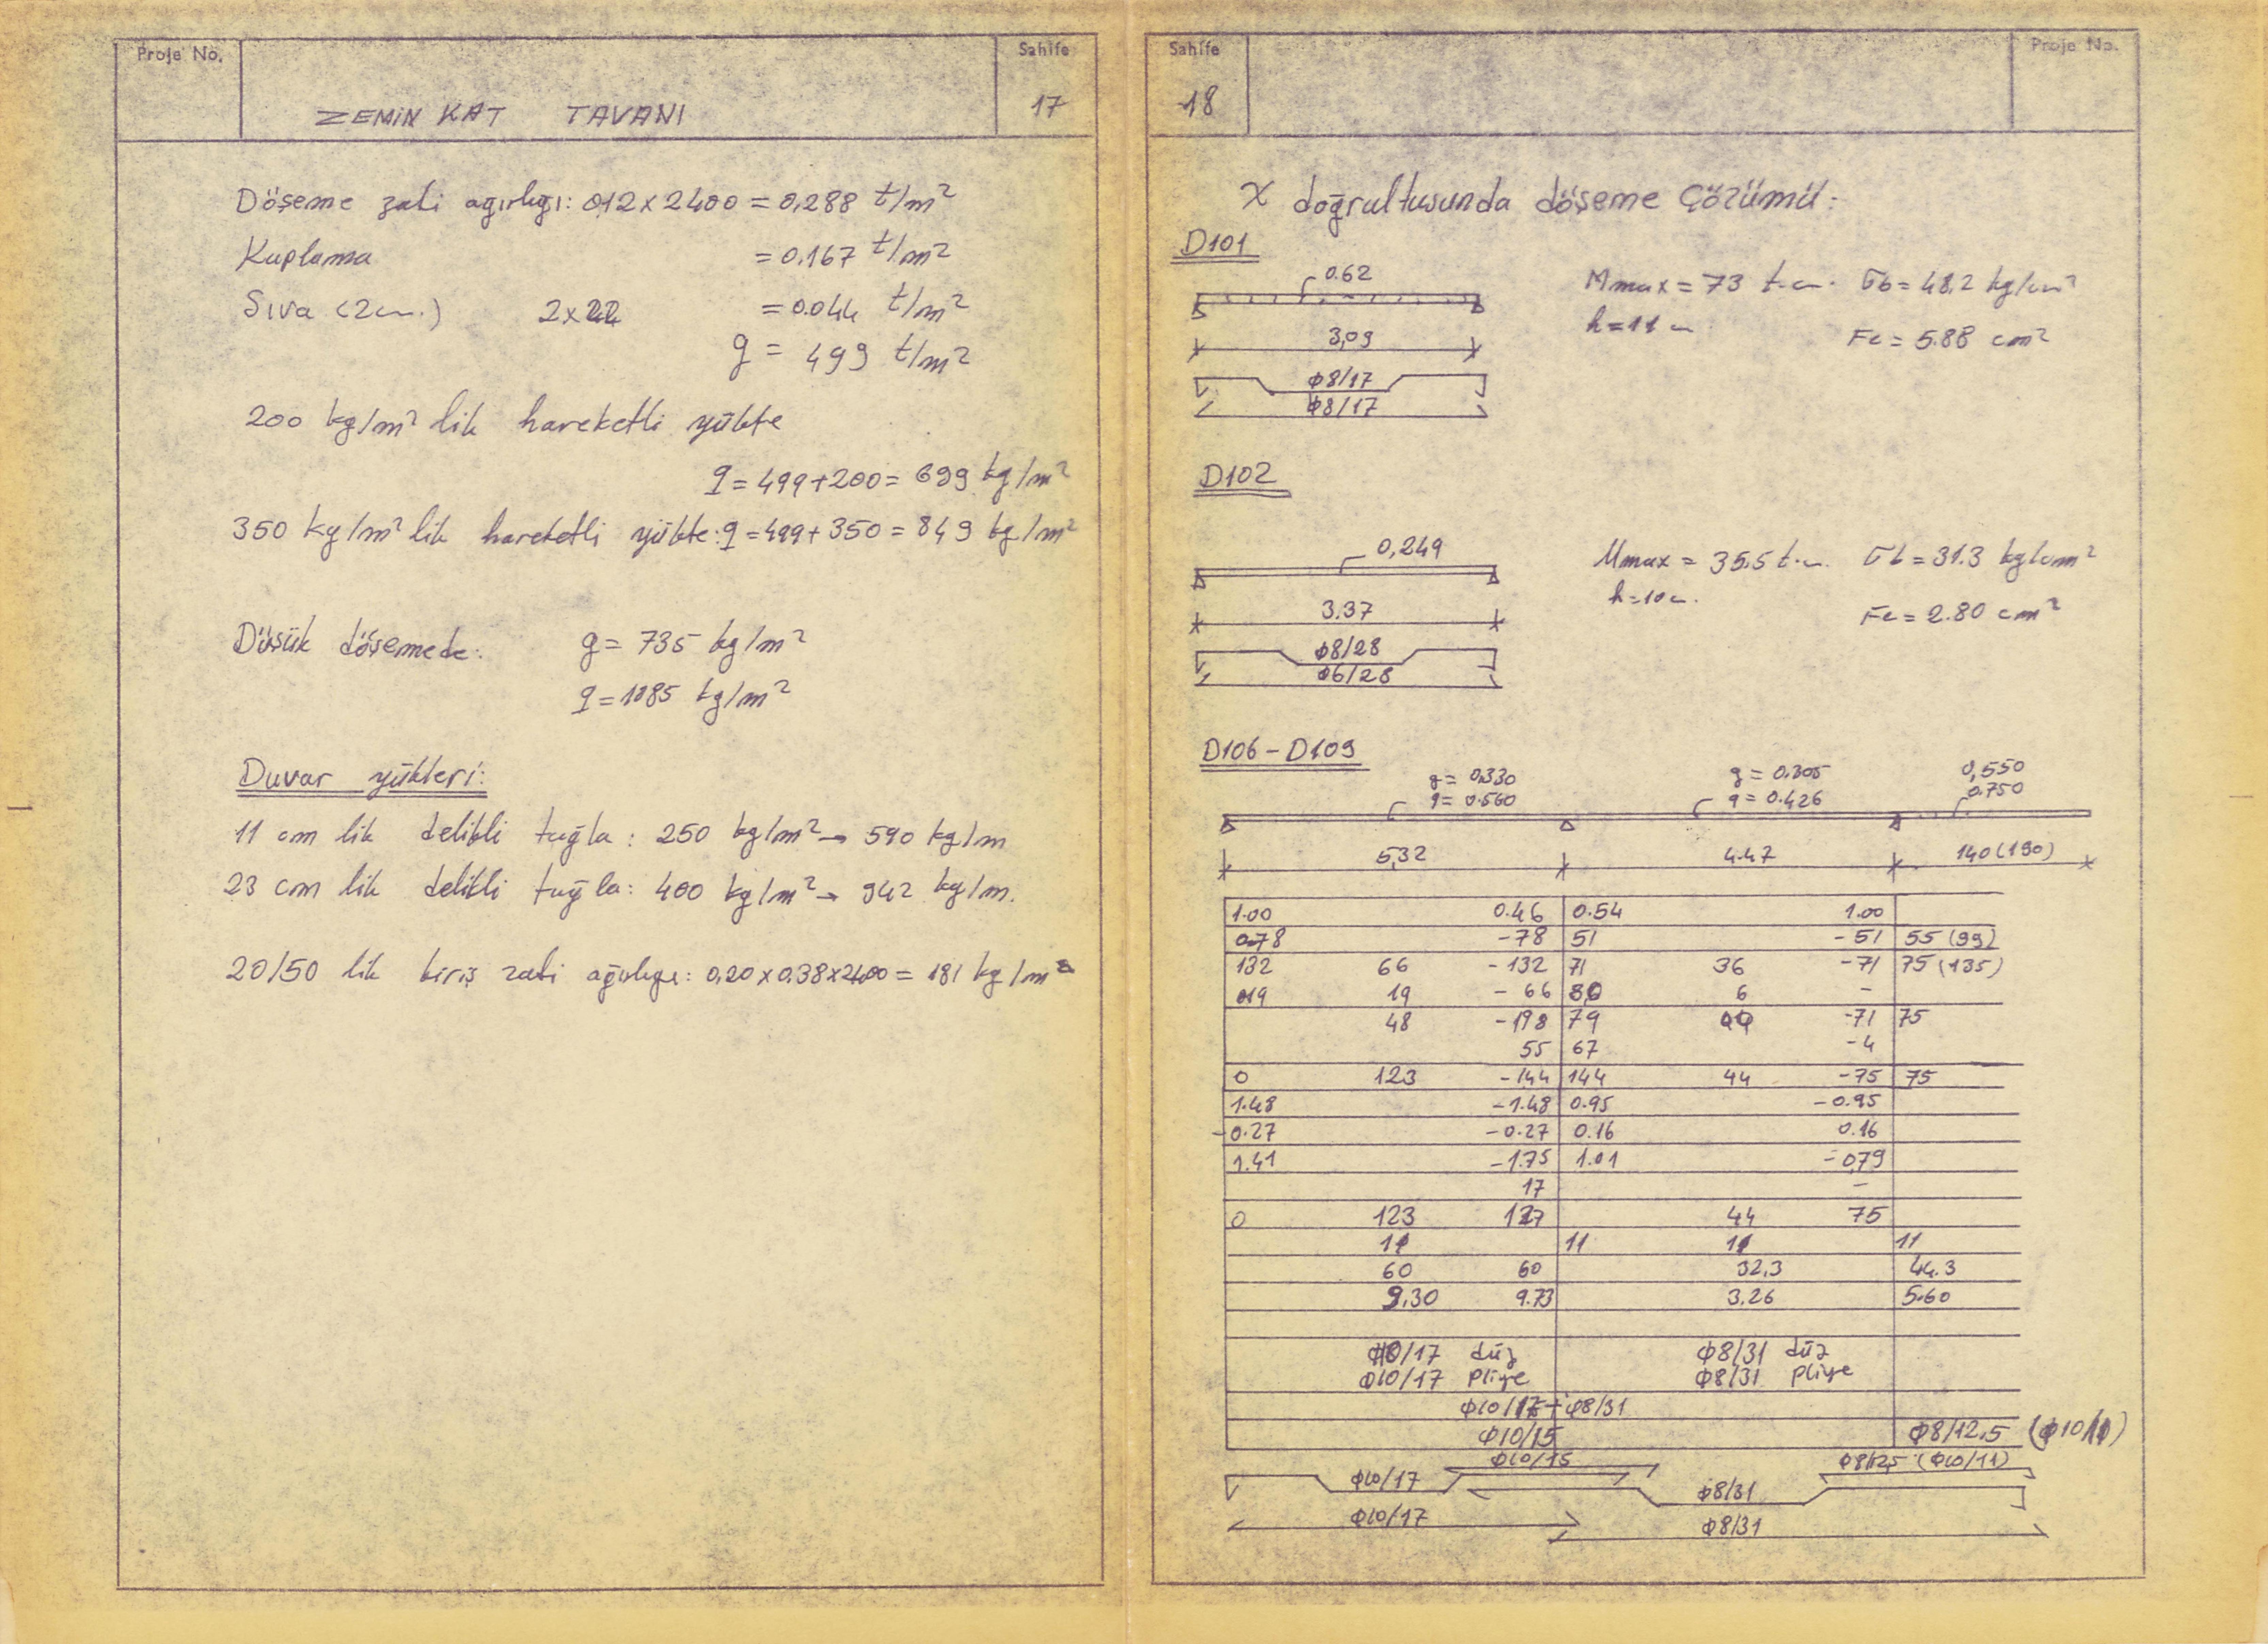 Proje No.
Sahife
ZEMİN KAT TAVANI
17
Döşeme zati ağırlığı: 0,12 x 2400 = 0,288 t/m²
Kaplama = 0.167 t/m²
Sıva (2cm.) 2x22 = 0.044 t/m²
g = 499 t/m²
200 kg/m² lik hareketli yükte
q = 499+200 = 699 kg/m²
350 kg/m² lik hareketli yükte: q = 499+350 = 849 kg/m²
Düşük döşemede: g = 735 kg/m²
q = 1085 kg/m²
Duvar yükleri:
11 cm lik delikli tuğla: 250 kg/m² → 590 kg/m
23 cm lik delikli tuğla: 400 kg/m² → 942 kg/m.
20/50 lik kiriş zati ağırlığı: 0,20 x 0.38 x 2400 = 181 kg/m
Sahife
Proje No.
18
X doğrultusunda döşeme çözümü:
D101
0.62
Mmax = 73 t.cm. σb = 48.2 kg/cm²
h = 11 cm
Fe = 5.88 cm²
3,09
ϕ8/17
ϕ8/17
D102
0,249
Mmax = 35.5 t.cm. σb = 31.3 kg/cm²
h = 10 cm.
Fe = 2.80 cm²
3.37
ϕ8/28
ϕ6/28
D106 – D109
g = 0.330 g = 0.305 0,550
q = 0.560 q = 0.426 0.750
5,32 4.47 140 (190)
1.00 0.46 0.54 1.00
0.78 -78 51 -51 55 (99)
132 66 -132 71 36 -71 75 (135)
19 19 -66 8 6 -
48 -198 79 -71 75
55 67 -4
0 123 -144 144 44 -75 75
1.48 -1.48 0.95 -0.95
-0.27 -0.27 0.16 0.16
1.41 -1.75 1.01 -0,79
17 -
0 123 127 44 75
11 11 11 11
60 60 32,3 44.3
9,30 9.73 3.26 5.60
ϕ10/17 düz ϕ8/31 düz
ϕ10/17 pliye ϕ8/31 pliye
ϕ10/17 + ϕ8/31
ϕ10/15 ϕ8/12.5 (ϕ10/11)
ϕ10/15 ϕ8/12,5 (ϕ10/11)
ϕ10/17 ϕ8/31
ϕ10/17 ϕ8/31